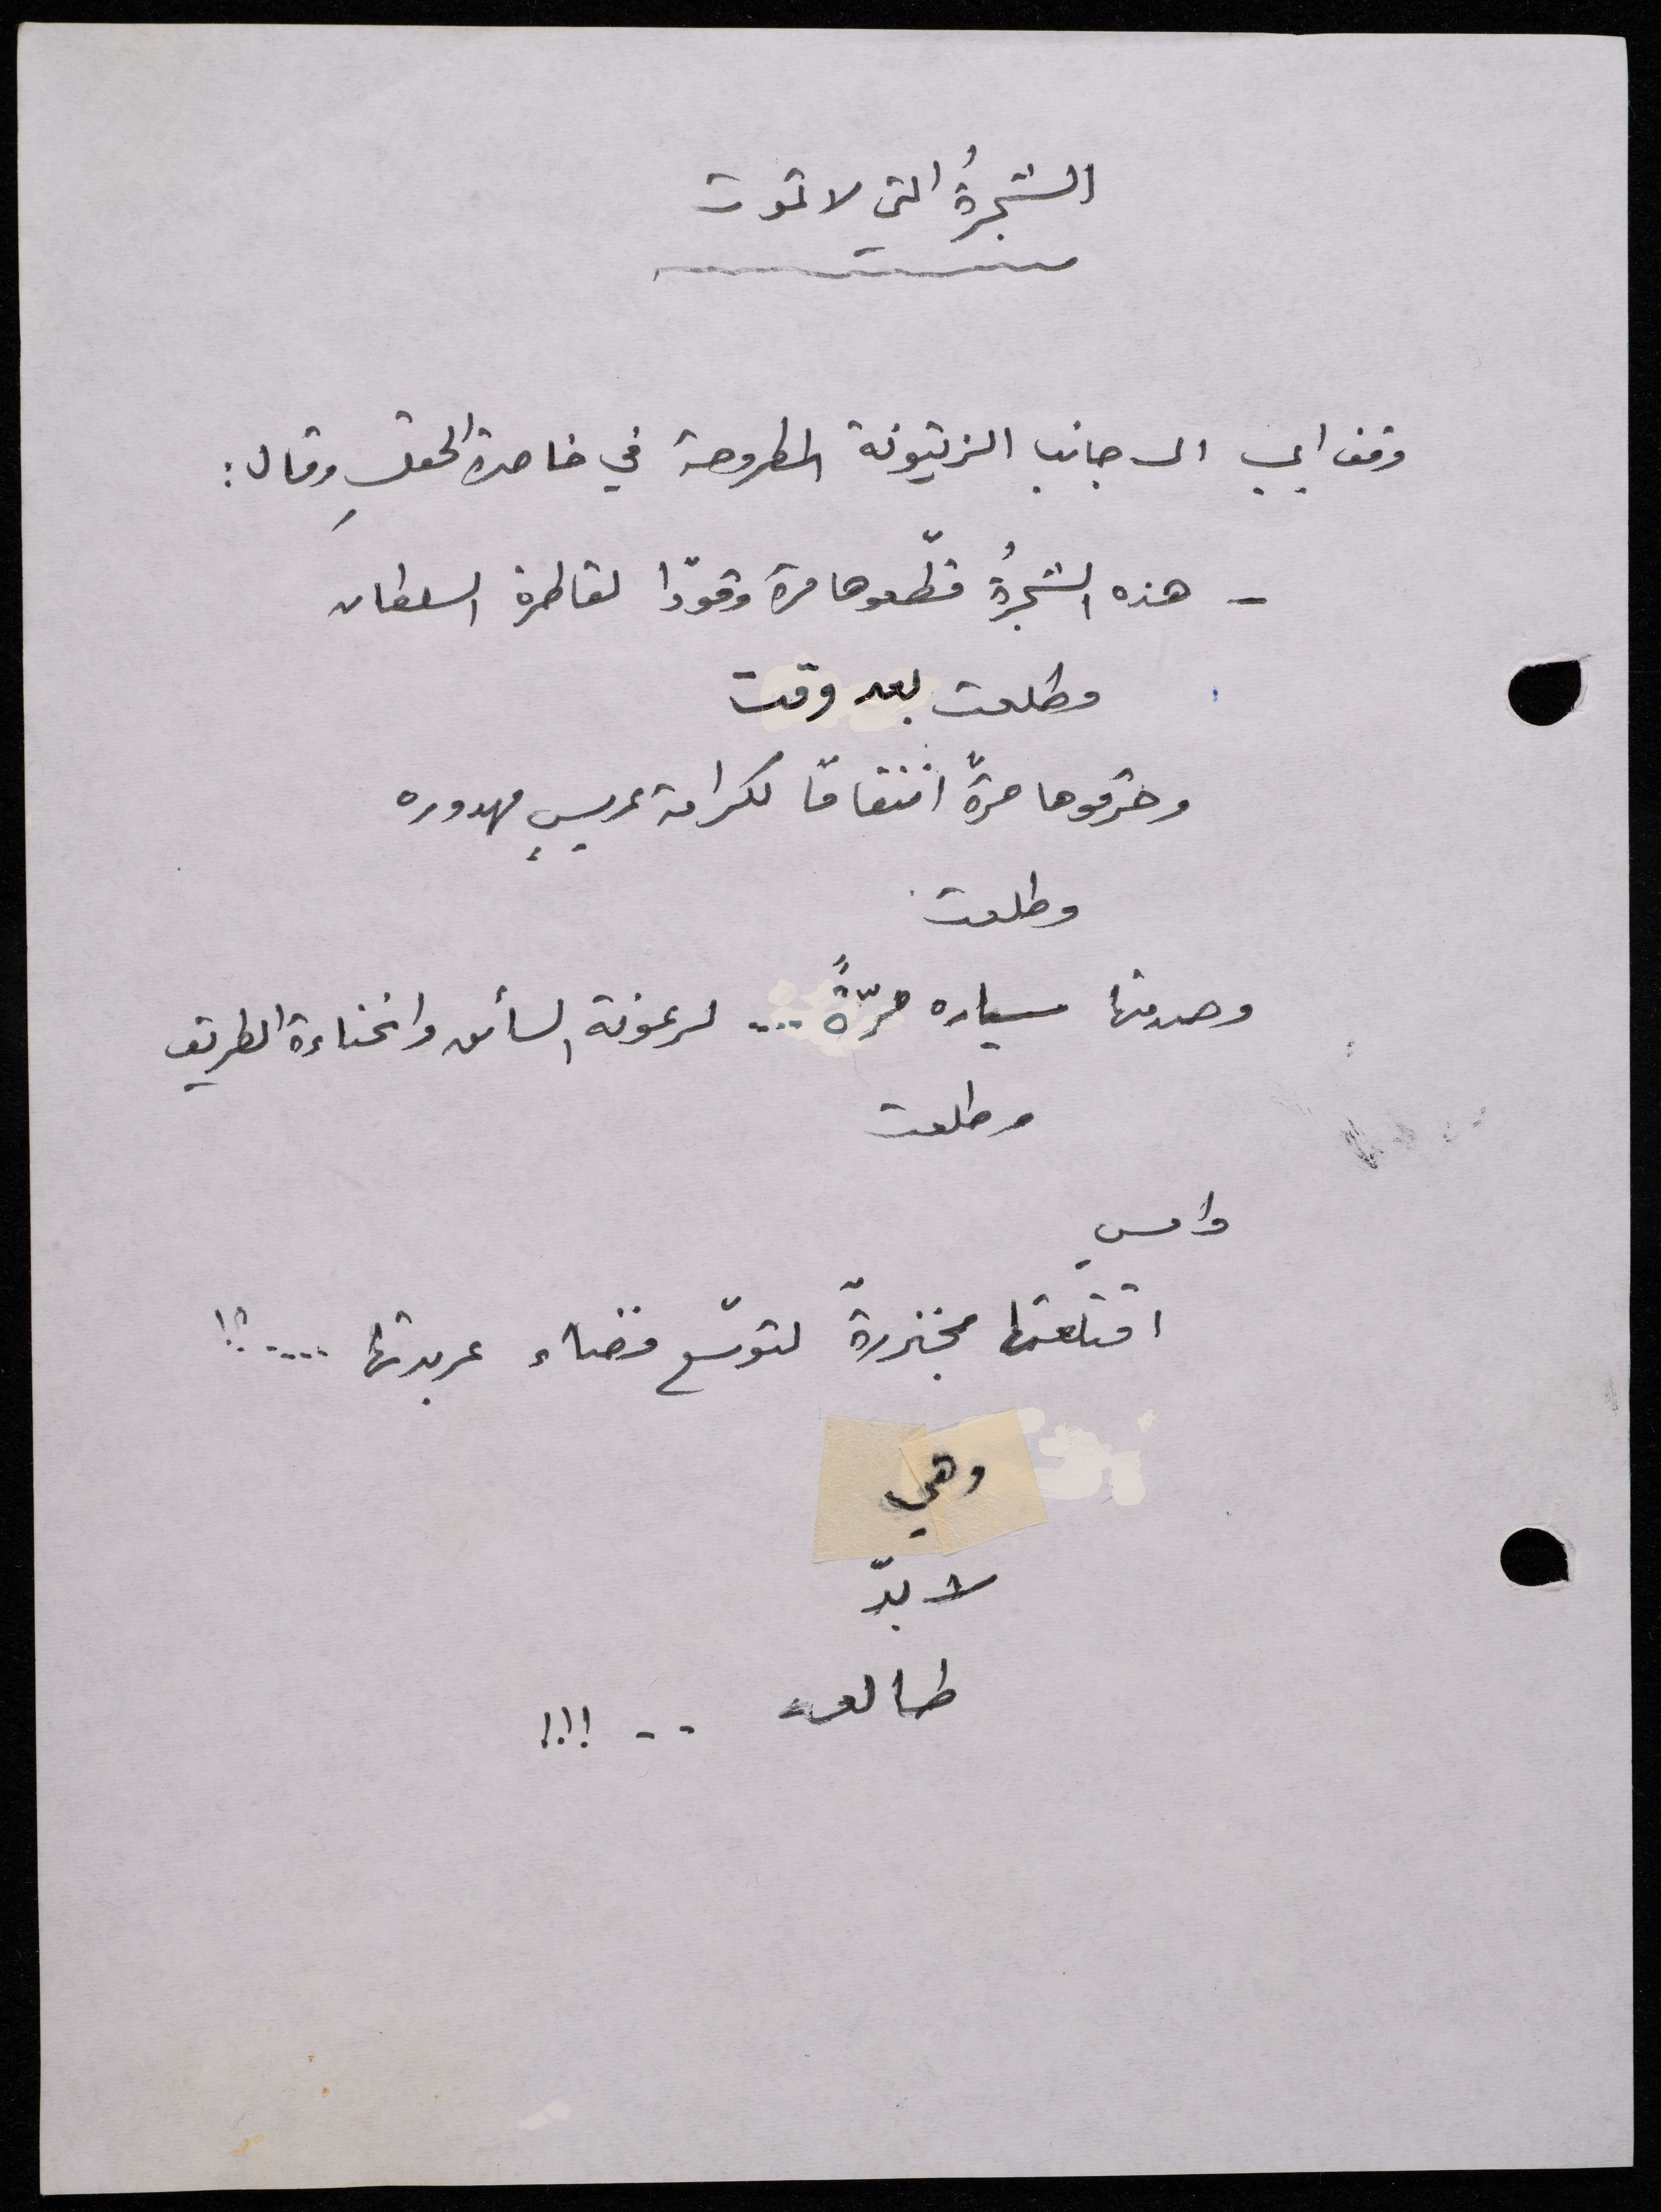 الشجرةُ التي لا تموت
وقف ابي الى جانب الزيتونة المطروحة في خاصرة الحقلِ وقال:
- هذه الشجرةُ قطّعوها مرة وقودًا لقاطرة السلطان
وطلعت بعد وقت
وحرقوها مرةً انتقامًا لكرامة عريسٍ مهدوره
وطلعت
وصدمتها سياره مرّةً .... لرعونة السائق وانحناءة الطريق
وطلعت
وامس
اقتلعتها مجنزرةٌ لتوسّع فضاء عربدتها ....؟!
وهي
لا بدّ
طالعه .. !!!